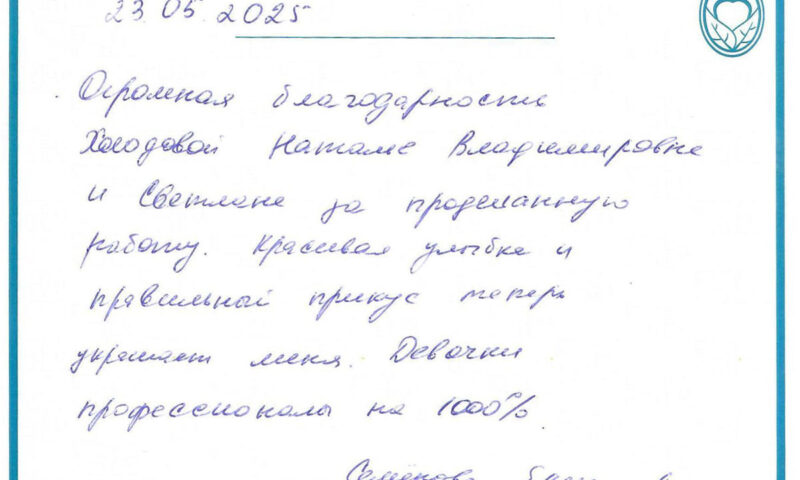 23.05.2025
Огромная благодарность
Холодовой Наталье Владимировне
и Светлане за проделанную
работу. Красивая улыбка и
правильный прикус теперь
украшает меня. Девочки
профессионалы на 1000%